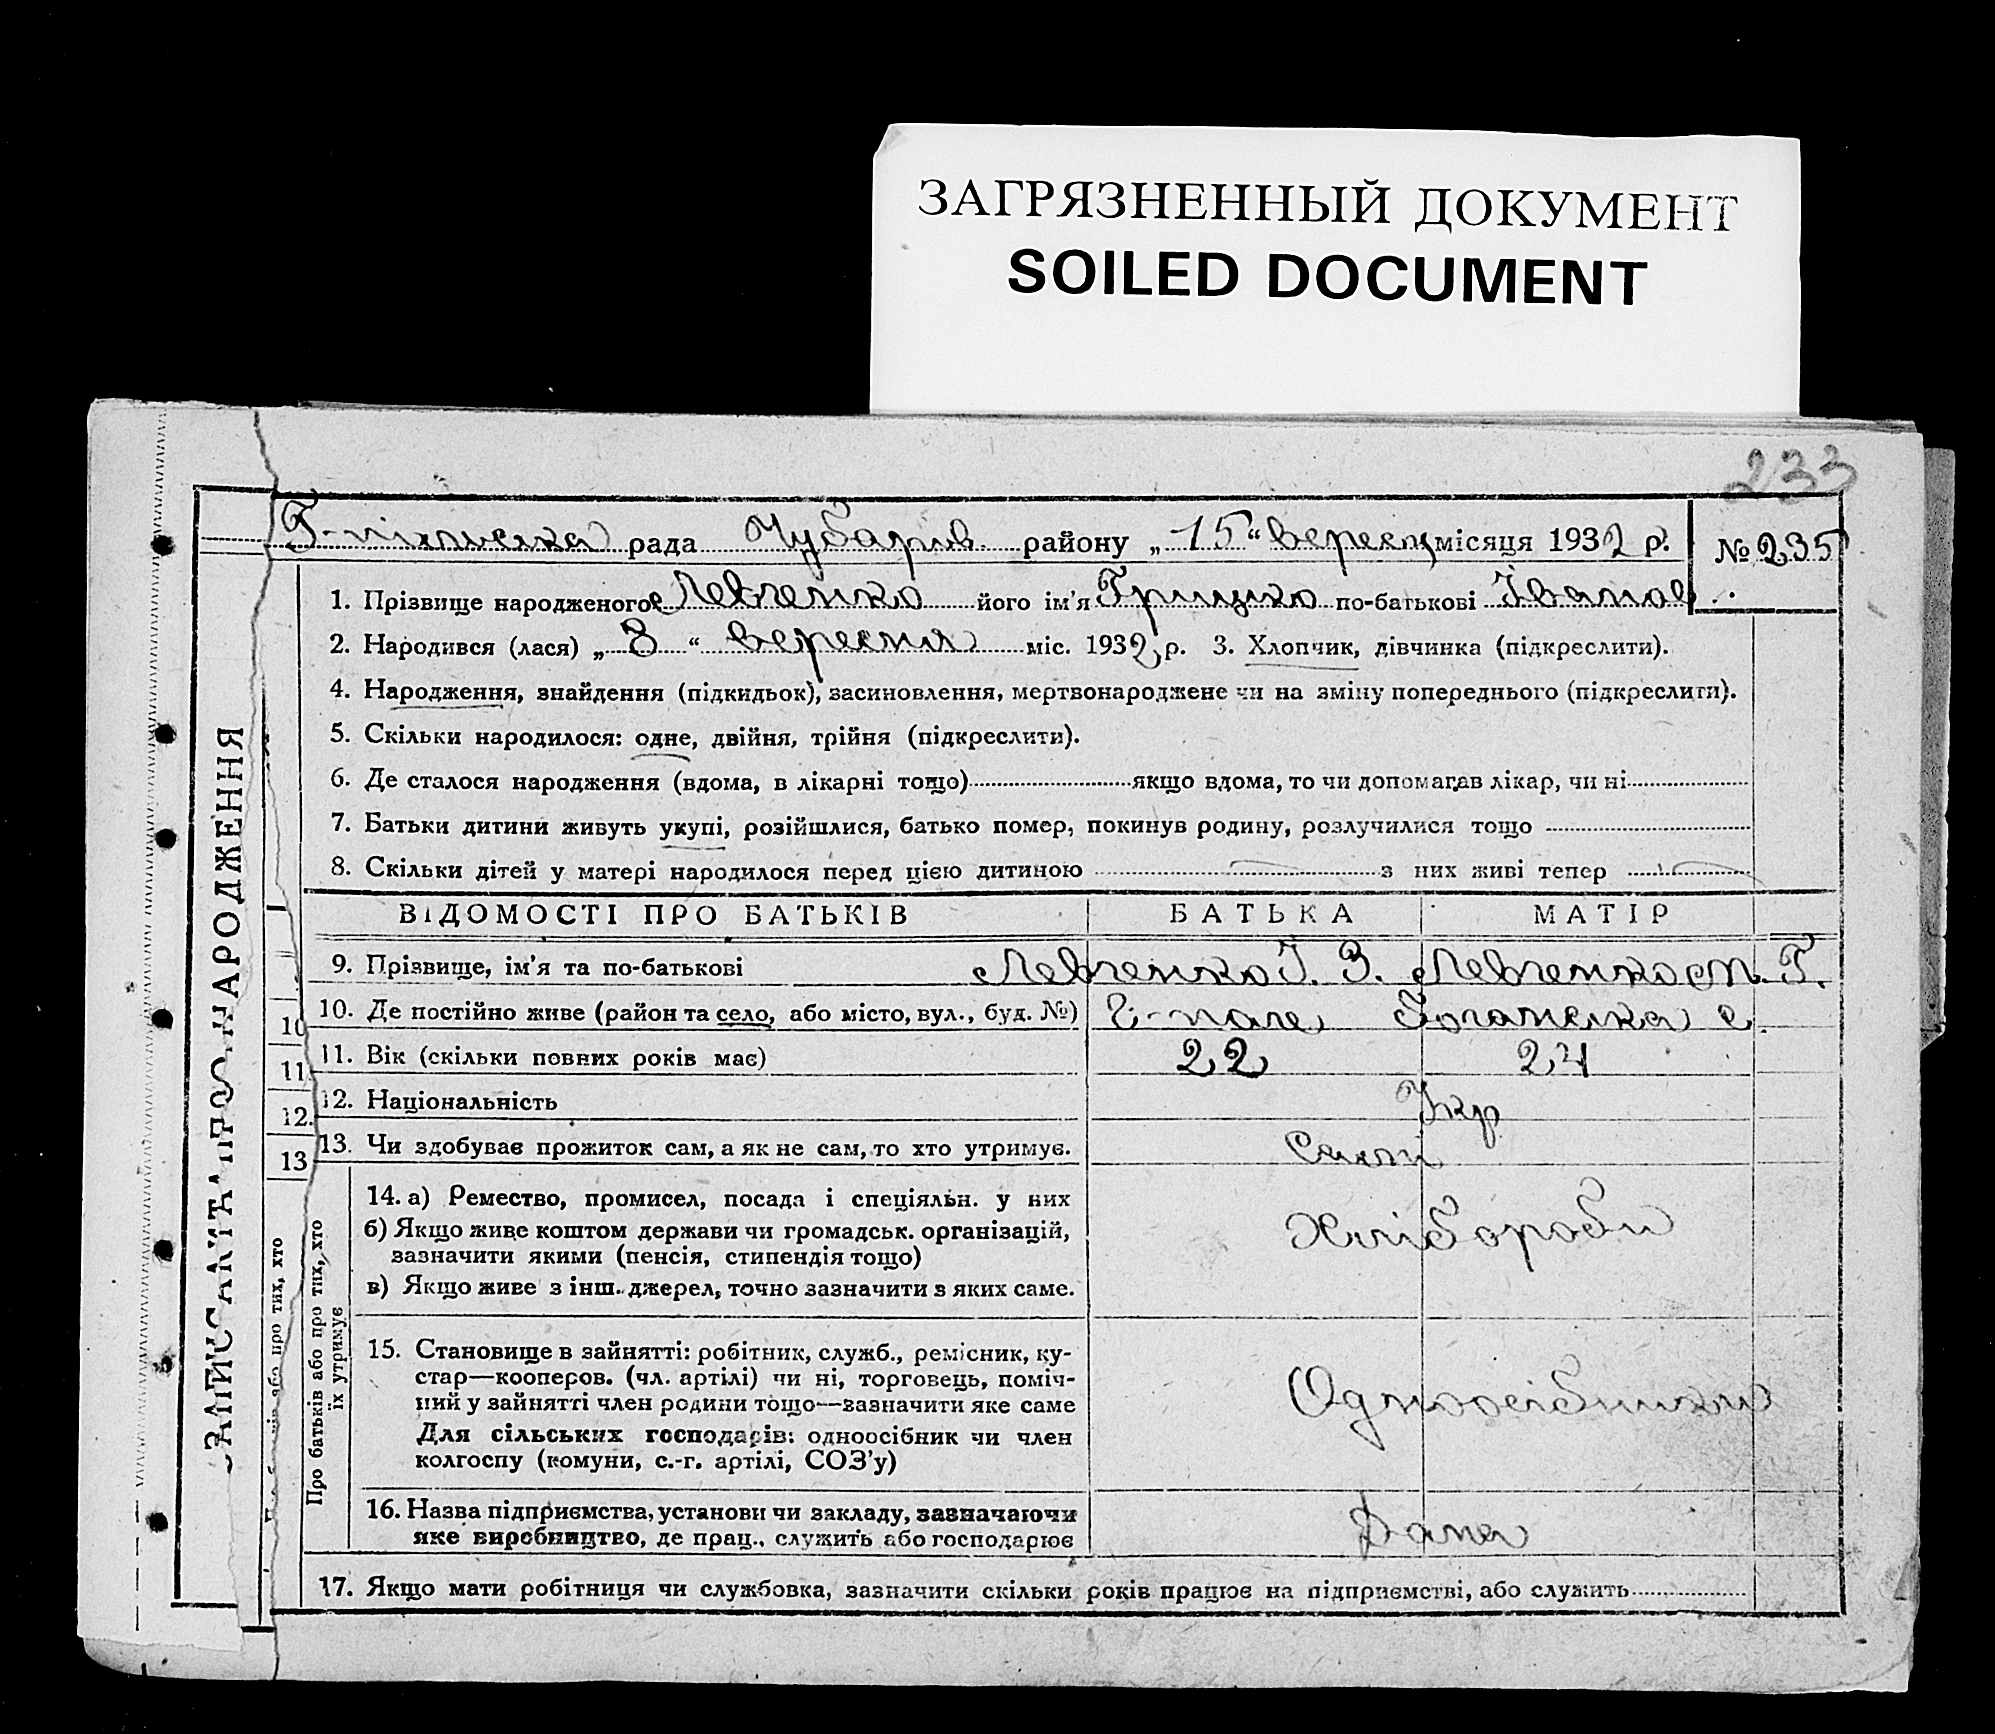 ЗАГРЯЗНЕННЫЙ ДОКУМЕНТ
SOILED DOCUMENT
233
Г-пільська рада Чубарів району „15“ вересн місяця 1932 р. № 235
1. Прізвище народженого Левченко його ім'я Грицько по-батькові Іванов
2. Народився (лася) „8“ вересня міс. 1932 р. 3. Хлопчик, дівчинка (підкреслити).
4. Народження, знайдення (підкидьок), засиновлення, мертвонароджене чи на зміну попереднього (підкреслити).
5. Скільки народилося: одне, двійня, трійня (підкреслити).
6. Де сталося народження (вдома, в лікарні тощо) якщо вдома, то чи допомагав лікар, чи ні
7. Батьки дитини живуть укупі, розійшлися, батько помер, покинув родину, розлучилися тощо
8. Скільки дітей у матері народилося перед цією дитиною — з них живі тепер —
ВІДОМОСТІ ПРО БАТЬКІВ БАТЬКА МАТІР
9. Прізвище, ім'я та по-батькові Левченко І. З. Левченко М. Г.
10. Де постійно живе (район та село, або місто, вул., буд. №) Г-поле
11. Вік (скільки повних років має) 22 24
12. Національність Укр
13. Чи здобуває прожиток сам, а як не сам, то хто утримує. Самі
14. а) Ремество, промисел, посада і спеціяльн. у них
б) Якщо живе коштом держави чи громадськ. організацій,
зазначити якими (пенсія, стипендія тощо)
в) Якщо живе з інш. джерел, точно зазначити з яких саме.
Хлібороби
15. Становище в зайнятті: робітник, служб., ремісник, ку-
стар—кооперов. (чл. артілі) чи ні, торговець, поміч-
ний у зайнятті член родини тощо—зазначити яке саме
Для сільських господарів: одноосібник чи член
колгоспу (комуни, с.-г. артілі, СОЗ'у)
Одноосібники
16. Назва підприємства, установи чи закладу, зазначаючи
яке виробництво, де прац., служить або господарює
Дома
17. Якщо мати робітниця чи службовка, зазначити скільки років працює на підприємстві, або служить
ЗАПИС АКТА ПРО НАРОДЖЕННЯ
Про батьків або про тих, хто
їх утримує
або про тих, хто
10
11.
12.
13